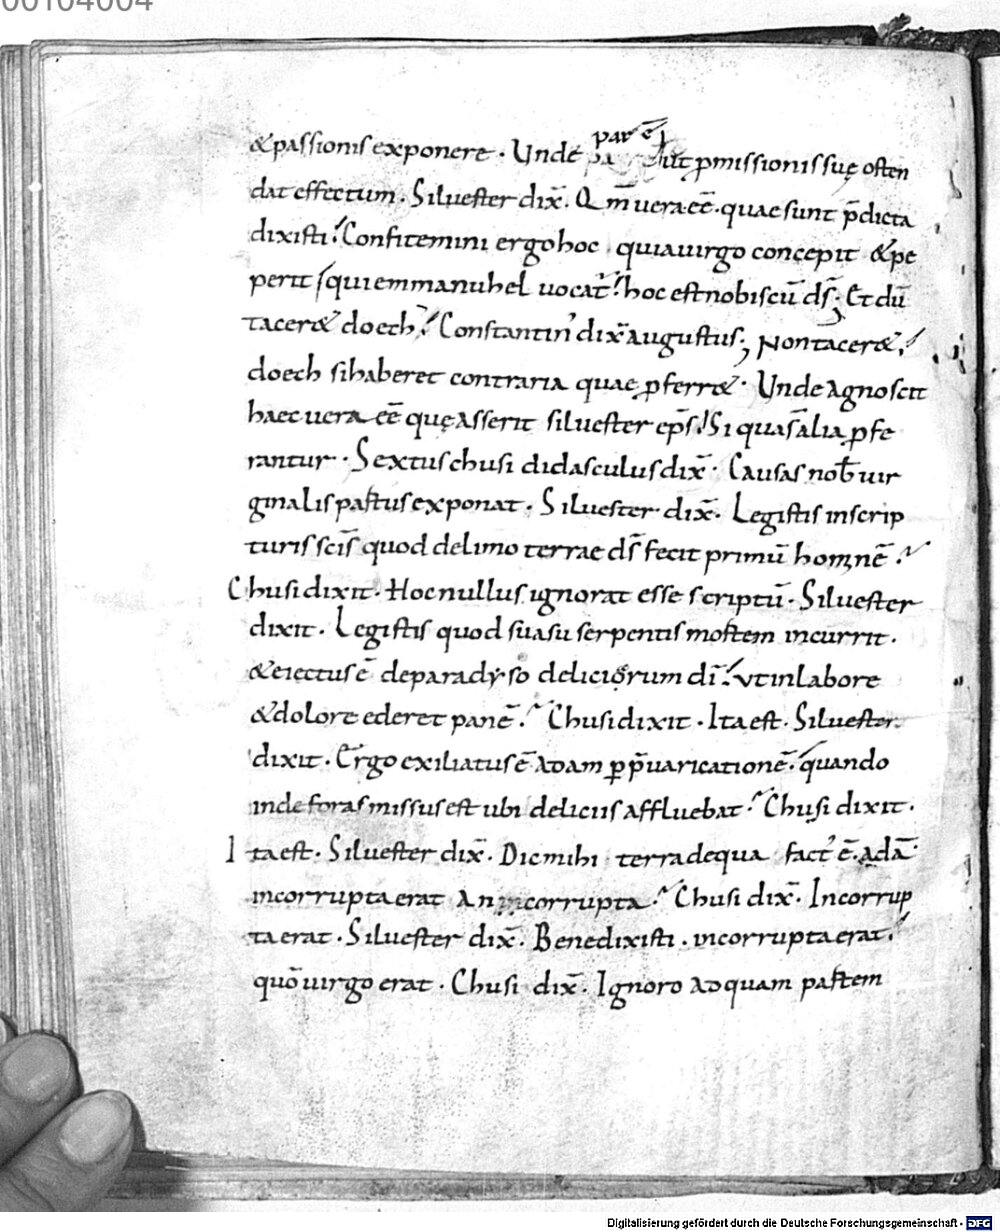 00104004
par ē
&passionis exponere · Unde ut p̄missionis suę osten
dat effectum · Siluester dix̄ · Qm̄ uera eē · quae sunt p̄dicta
dixisti · Confitemini ergo hoc · quia uirgo concepit & pe
perit qui emmanuhel uocat̄ hoc est nobiscū ds̄; Et dū
tacer& doech · Constantin' dix̄ augustus; Non tacer&
doech si haberet contraria quae ꝓferr& · Unde agnoscit
haec uera eē quę asserit siluester ep̄s · Si quas alia ꝓfe
rantur · Sextus chusi didasculus dix̄ · Causas nob̄ uir
ginalis partus exponat · Siluester dix̄ · Legistis in scrip
turis scīs quod de limo terrae ds̄ fecit primū hominē
Chusi dixit · Hoc nullus ignorat esse scriptū · Siluester
dixit · Legistis quod suasu serpentis mortem incurrit ·
& eiectus ē de paradyso deliciorum dī ut in labore
& dolore ederet panē · Chusi dixit · Ita est · Siluester
dixit · Ergo exiliatus ē adam ꝑ p̄uaricationē · quando
inde foras missus est ubi deliciis affluebat · Chusi dixit ·
Ita est · Siluester dix̄ · Dic mihi terra de qua fact' ē adā
incorrupta erat an corrupta · Chusi dix̄ · Incorrup
ta erat · Siluester dix̄ · Bene dixisti · incorrupta erat
quō uirgo erat · Chusi dix̄ · Ignoro ad quam partem
Digitalisierung gefördert durch die Deutsche Forschungsgemeinschaft - DFG